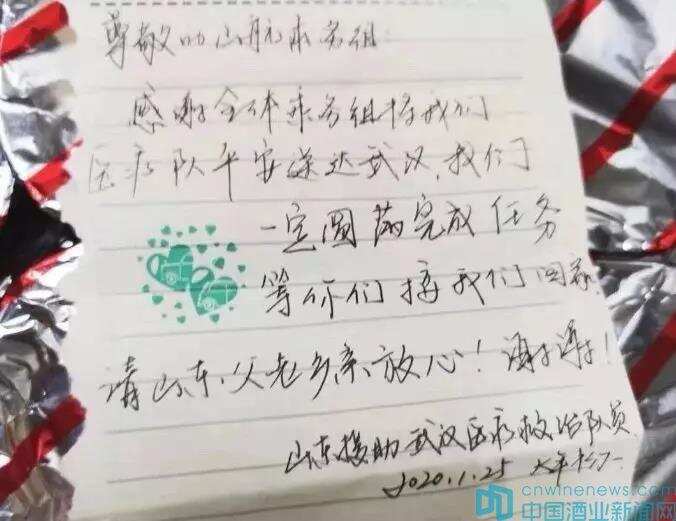 尊敬的山航乘务组:
感谢全体乘务组将我们
医疗队平安送达武汉,我们
一定圆满完成任务
等你们接我们回家.
请山东父老乡亲放心!谢谢!
山东援助武汉医疗救治队员
2020.1.25
cnwinenews.com
中国酒业新闻网